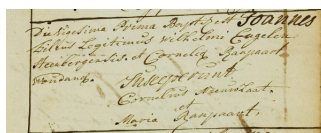 Die Vigesima Prima Bapt: est Joannes
Filius Legitimus Wilhelmi Engelen
et Cornelia Ranzaart
Susceperunt
Cornelius Nieuwlaat
et
Maria Ranzaart.